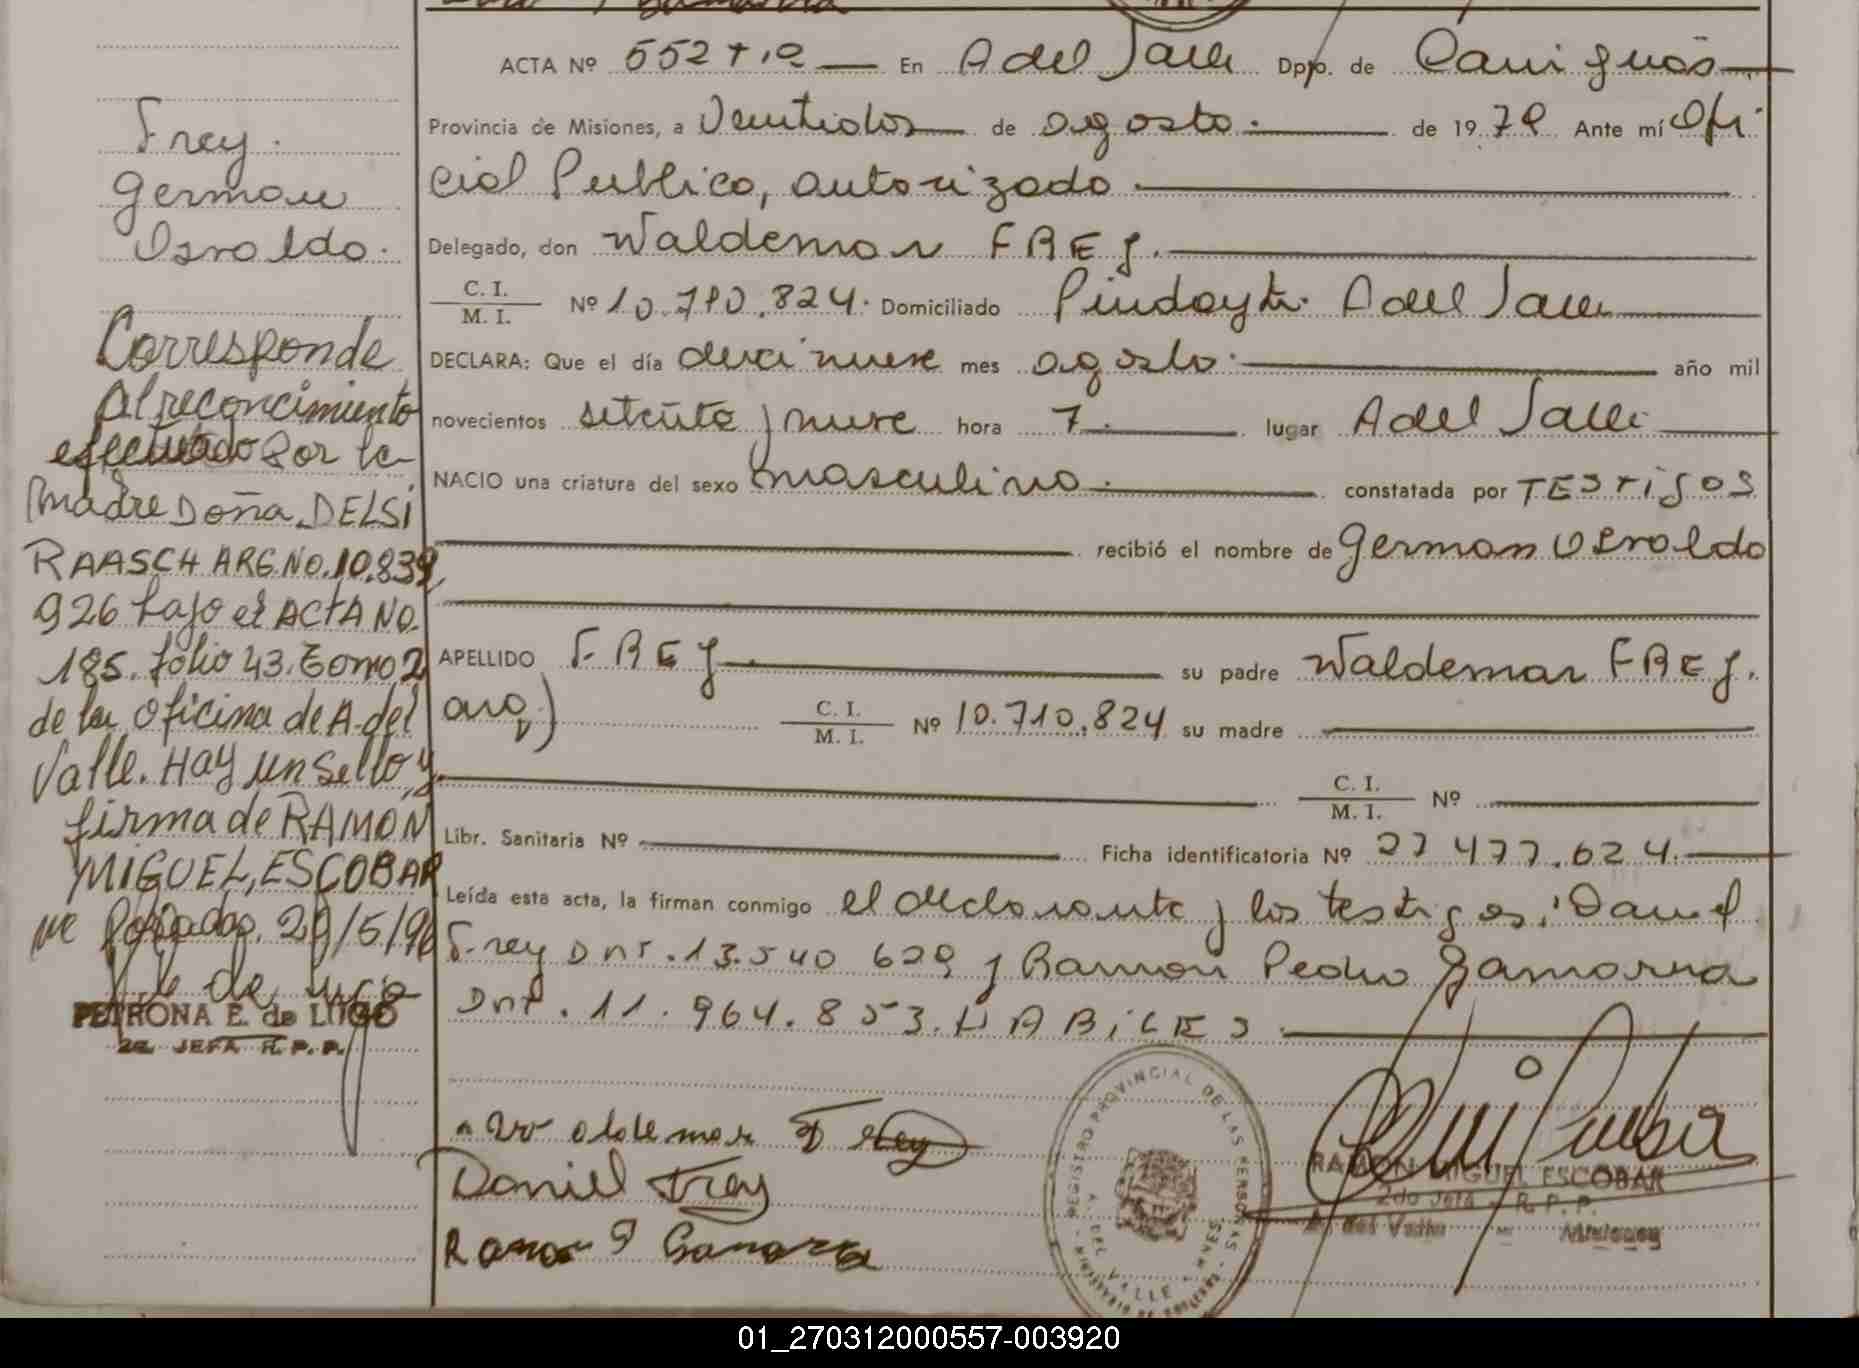 ACTA Nº 552 tº En A del Valle Dpto. de Cainguás
Provincia de Misiones, a Veintidos de agosto. de 1979 Ante mí Ofi
cial Publico, autorizado.
Delegado, don Waldemar FREY.
C. I.
M. I. Nº 10.710.824. Domiciliado Pindayti. A del Valle
DECLARA: Que el día diecinueve mes agosto. año mil
novecientos setenta y nueve hora 7. lugar A del Valle
NACIO una criatura del sexo masculino. constatada por TESTigos
recibió el nombre de German Osvaldo
APELLIDO FREY. su padre Waldemar FREY.
arg) C. I.
M. I. Nº 10.710.824 su madre
C. I.
M. I. Nº
Libr. Sanitaria Nº Ficha identificatoria Nº 27 477.624.
Leída esta acta, la firman conmigo el declarante y los testigos: Daniel
Frey Dni. 13.540 629 y Ramon Pedro Gamarra
Dni. 11.964.853. HABiLES
Waldemar Frey
Daniel Frey
Ramon P Gamarra
REGISTRO PROVINCIAL DE LAS PERSONAS
A. DEL VALLE
RAMON MIGUEL ESCOBAR
2do Jefe R. P. P.
A. del Valle - Misiones
Frey.
German
Osvaldo.
Corresponde
al reconocimiento
efectuado por la
madre Doña DELSi
RAASCH ARG.NO.10.839
926 bajo el ACTA NO.
185. folio 43. Tomo 2
de la oficina de A. del
Valle. Hay un sello y
firma de RAMON
MIGUEL, ESCOBAR
Posadas, 29/5/96
PETRONA E. de LUGO
2a. JEFA R. P. P.
01_270312000557-003920